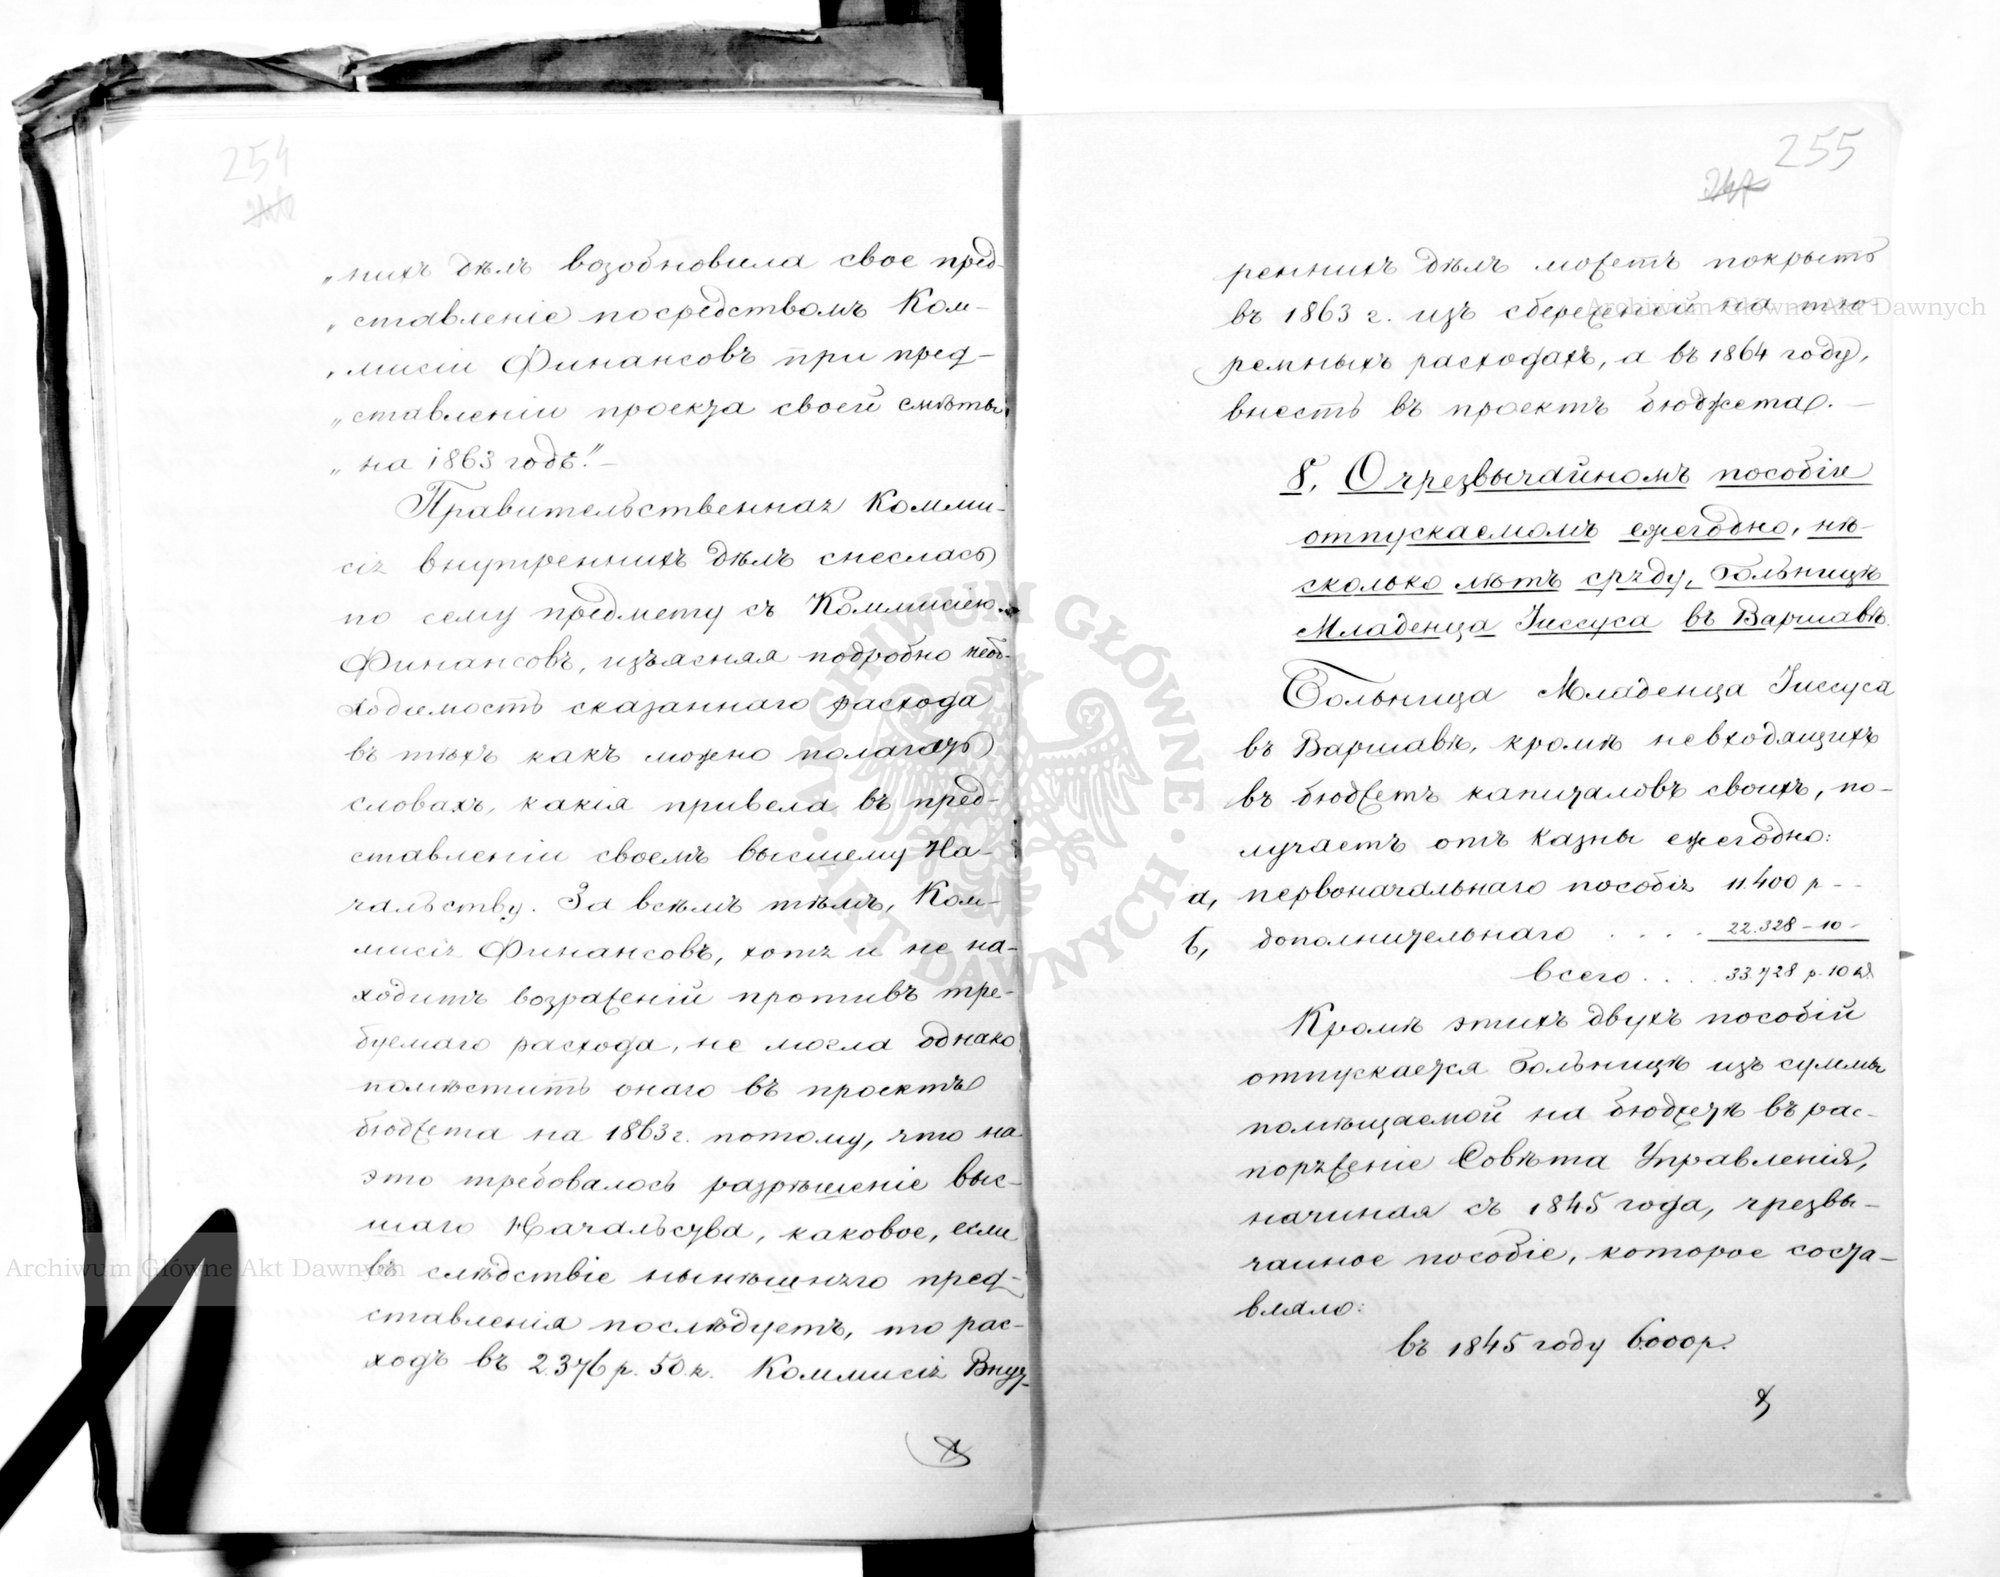 254
„нихъ дѣлъ возобновила свое пред-
„ставленіе посредствомъ Ком-
„мисіи Финансовъ при пред-
„ставленіи проекта своей смѣты
„на 1863 годъ."—
Правительственная Комми-
сія внутреннихъ дѣлъ снеслась
по сему предмету съ Коммисіею
Финансовъ, изъясняя подробно необ-
ходимость сказаннаго расхода
въ тѣхъ какъ можно полагать
словахъ, какія привела въ пред-
ставленіи своемъ высшему На-
чальству. За всѣмъ тѣмъ, Ком-
мисія Финансовъ, хотя и не на-
ходитъ возраженій противъ тре-
буемаго расхода, не могла однако
помѣстить онаго въ проектъ
бюджета на 1863 г. потому, что на
это требовалось разрѣшеніе выс-
шаго Начальства, каковое, если
въ слѣдствіе нынѣшняго пред-
ставленія послѣдуетъ, то рас-
ходъ въ 2.376 р. 50 к. Коммисія Внут-
255
реннихъ дѣлъ можетъ покрыть
въ 1863 г. изъ сбереженій на тю-
ремныхъ расходахъ, а въ 1864 году,
внесть въ проектъ бюджета.—
8. О чрезвычайномъ пособіи
отпускаемомъ ежегодно, нѣ-
сколько лѣтъ сряду, больницѣ
Младенца Іисуса въ Варшавѣ.
Больница Младенца Іисуса
въ Варшавѣ, кромѣ невходящихъ
въ бюджетъ капиталовъ своихъ, по-
лучаетъ отъ казны ежегодно:
а, первоначальнаго пособія 11.400 р - -
б, дополнительнаго . . . . 22.328 - 10 -
всего . . . 33.728 р. 10 к.
Кромѣ этихъ двухъ пособій
отпускается больницѣ изъ суммы
помѣщаемой на бюджетѣ въ рас-
поряженіе Совѣта Управленія,
начиная съ 1845 года, чрезвы-
чайное пособіе, которое соста-
вляло:
въ 1845 году 6.000 р.
Archiwum Główne Akt Dawnych
Archiwum Główne Akt Dawnych
ARCHIWUM GŁÓWNE AKT DAWNYCH